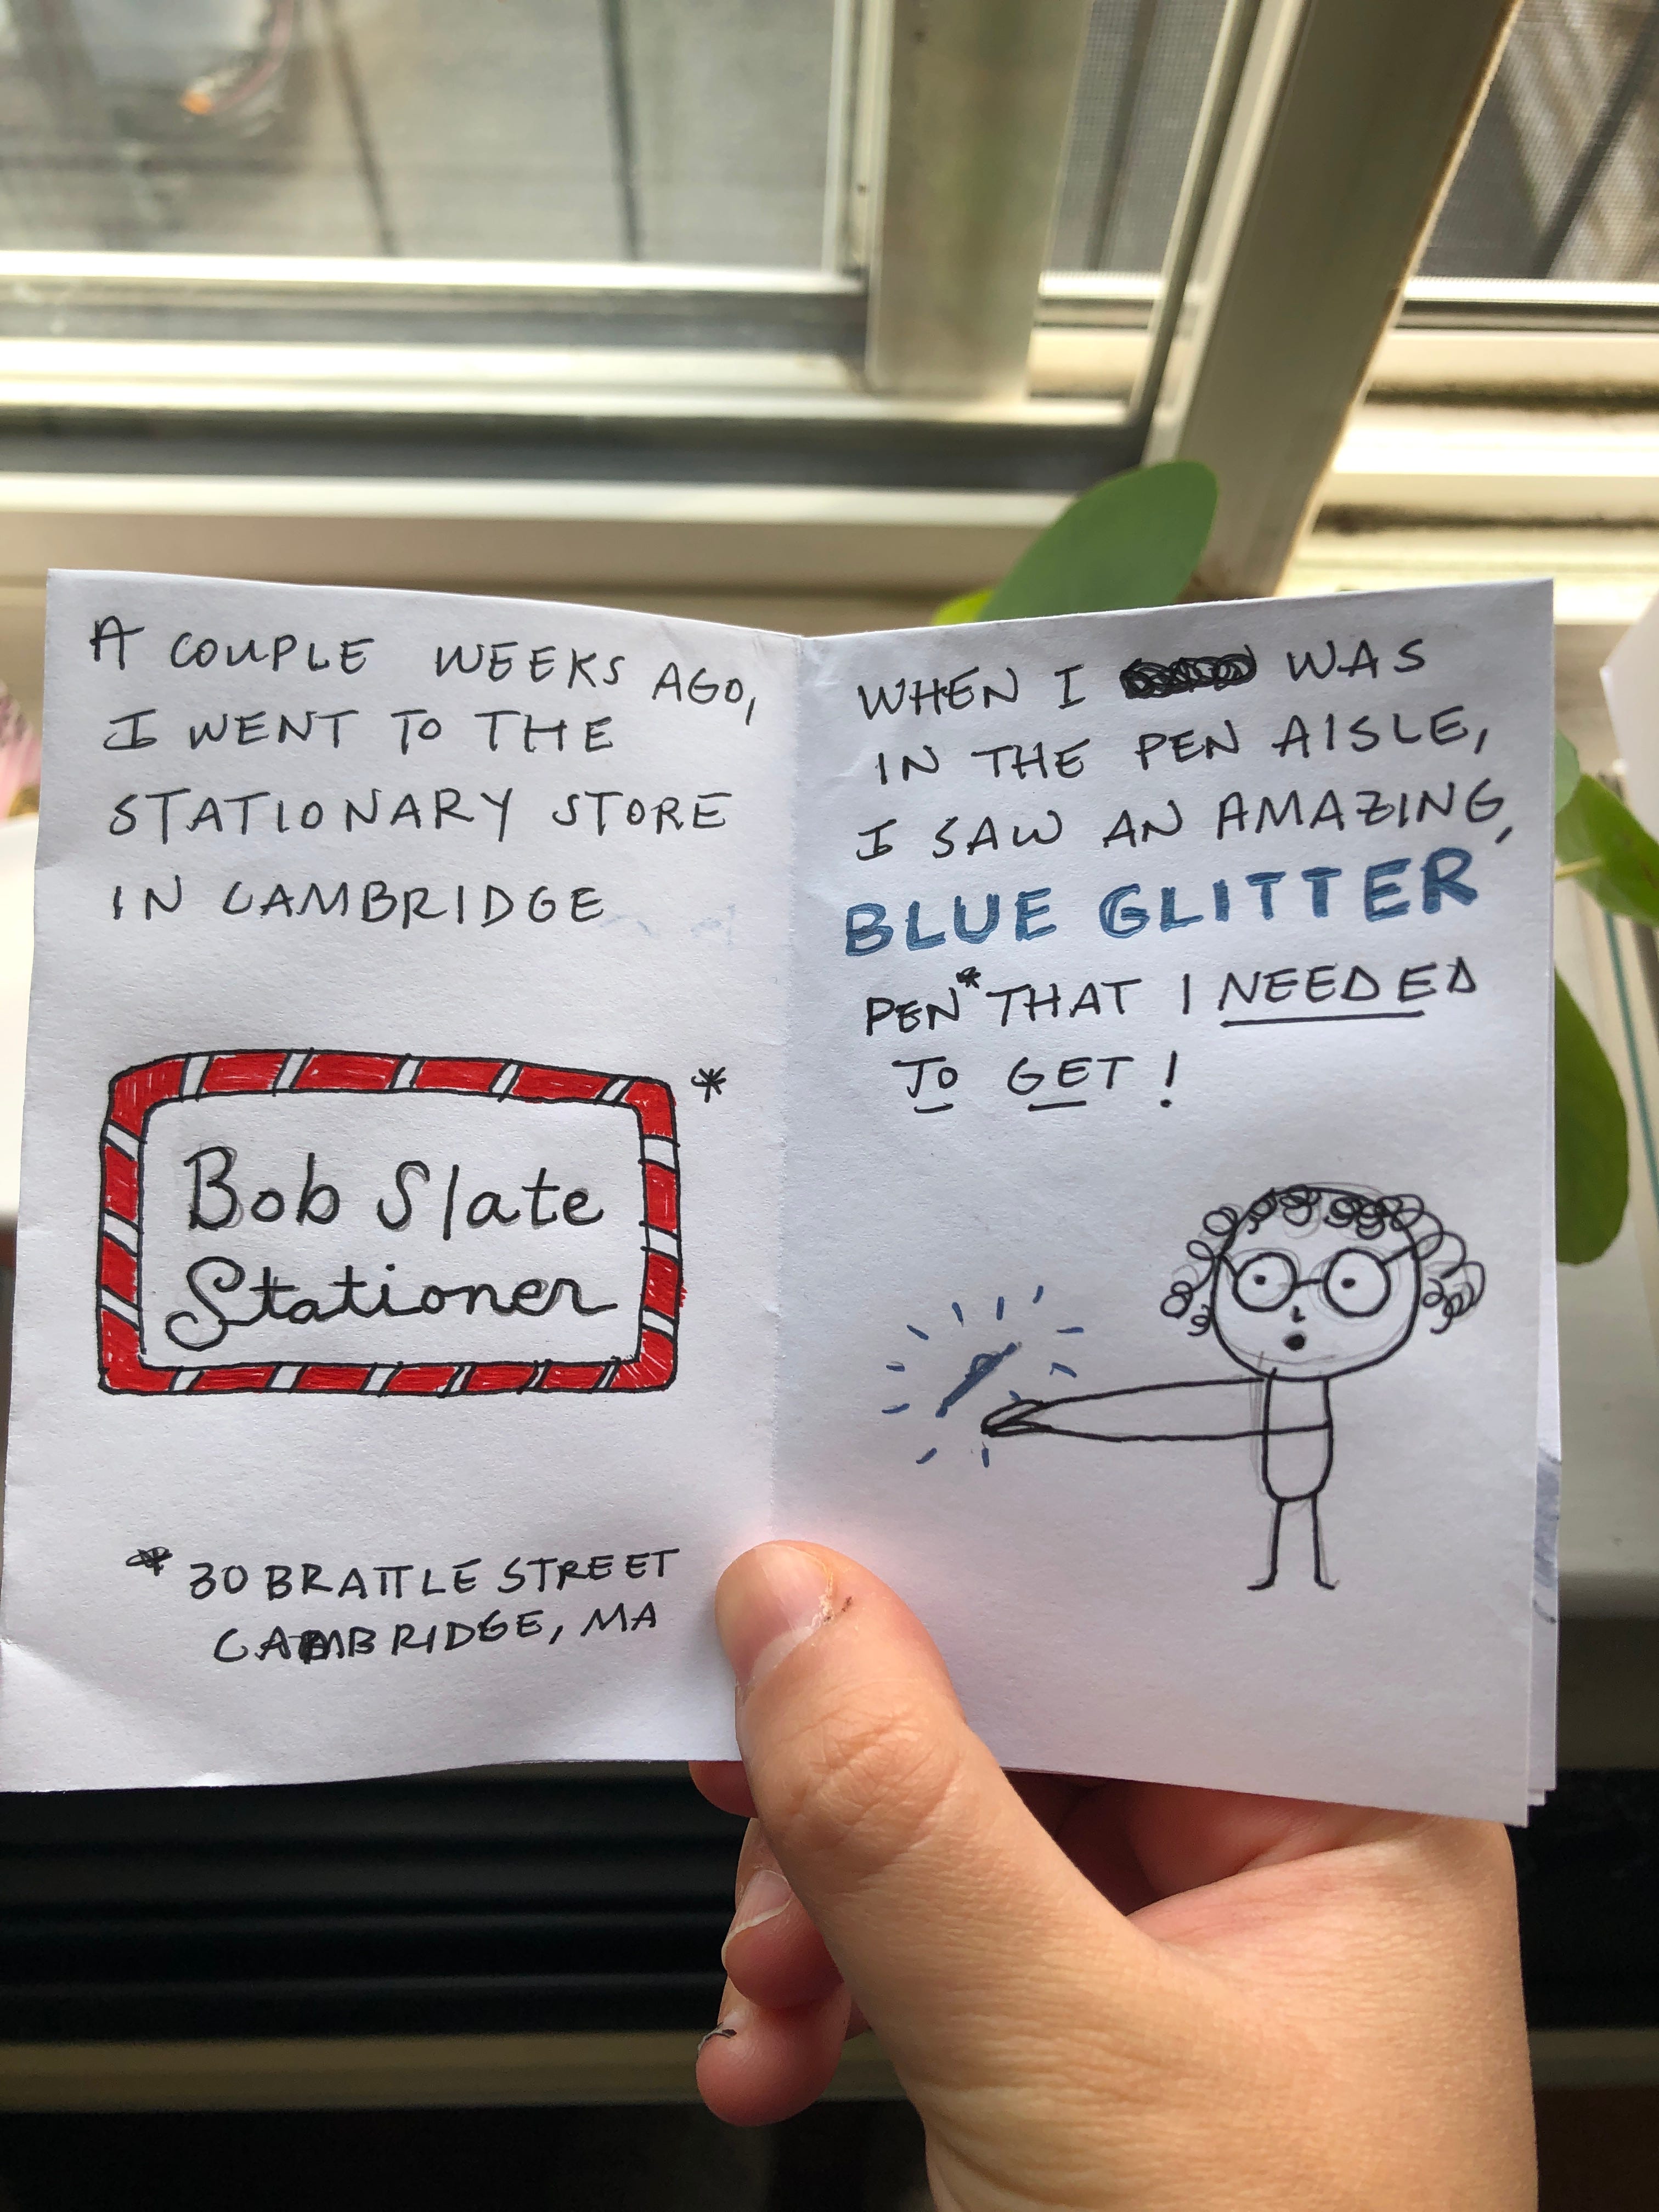 A COUPLE WEEKS AGO,
I WENT TO THE
STATIONARY STORE
IN CAMBRIDGE
*
Bob Slate
Stationer
* 30 BRATTLE STREET
CAMBRIDGE, MA
WHEN I WAS
IN THE PEN AISLE,
I SAW AN AMAZING,
BLUE GLITTER
PEN* THAT I NEEDED
TO GET!